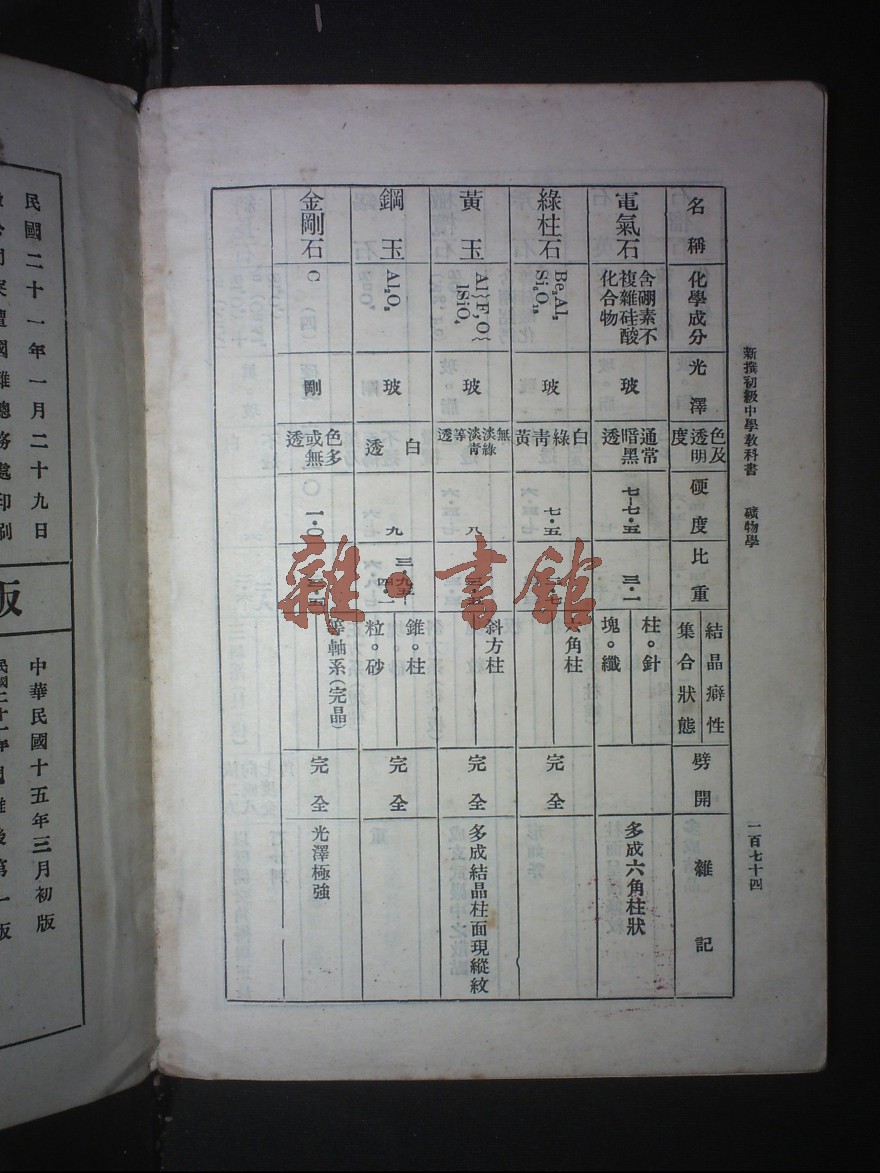 新撰初級中學教科書 礦物學
一百七十四
名稱
化學成分
光澤
色及透明度
硬度
比重
結晶癖性
集合狀態
劈開
雜記
電氣石
含硼素不
複雜硅酸
化合物
玻
通常
暗黑
透
七—七·五
三·一
柱。針
塊。纖
多成六角柱狀
綠柱石
Be₃Al₂
Si₆O₁₈
玻
白綠青黃
七·五
六角柱
完全
黃玉
玻
無
淡綠
淡青
等透
八
斜方柱
完全
多成結晶柱面現縱紋
鋼玉
Al₂O₃
玻
白
透
九
三·九五—
錐。柱
粒。砂
完全
金剛石
C
剛
色多
或無
透
一·〇
等軸系(完晶)
完全
光澤極強
雜·書館
民國二十一年一月二十九日
國難總務處印刷
版
中華民國十五年三月初版